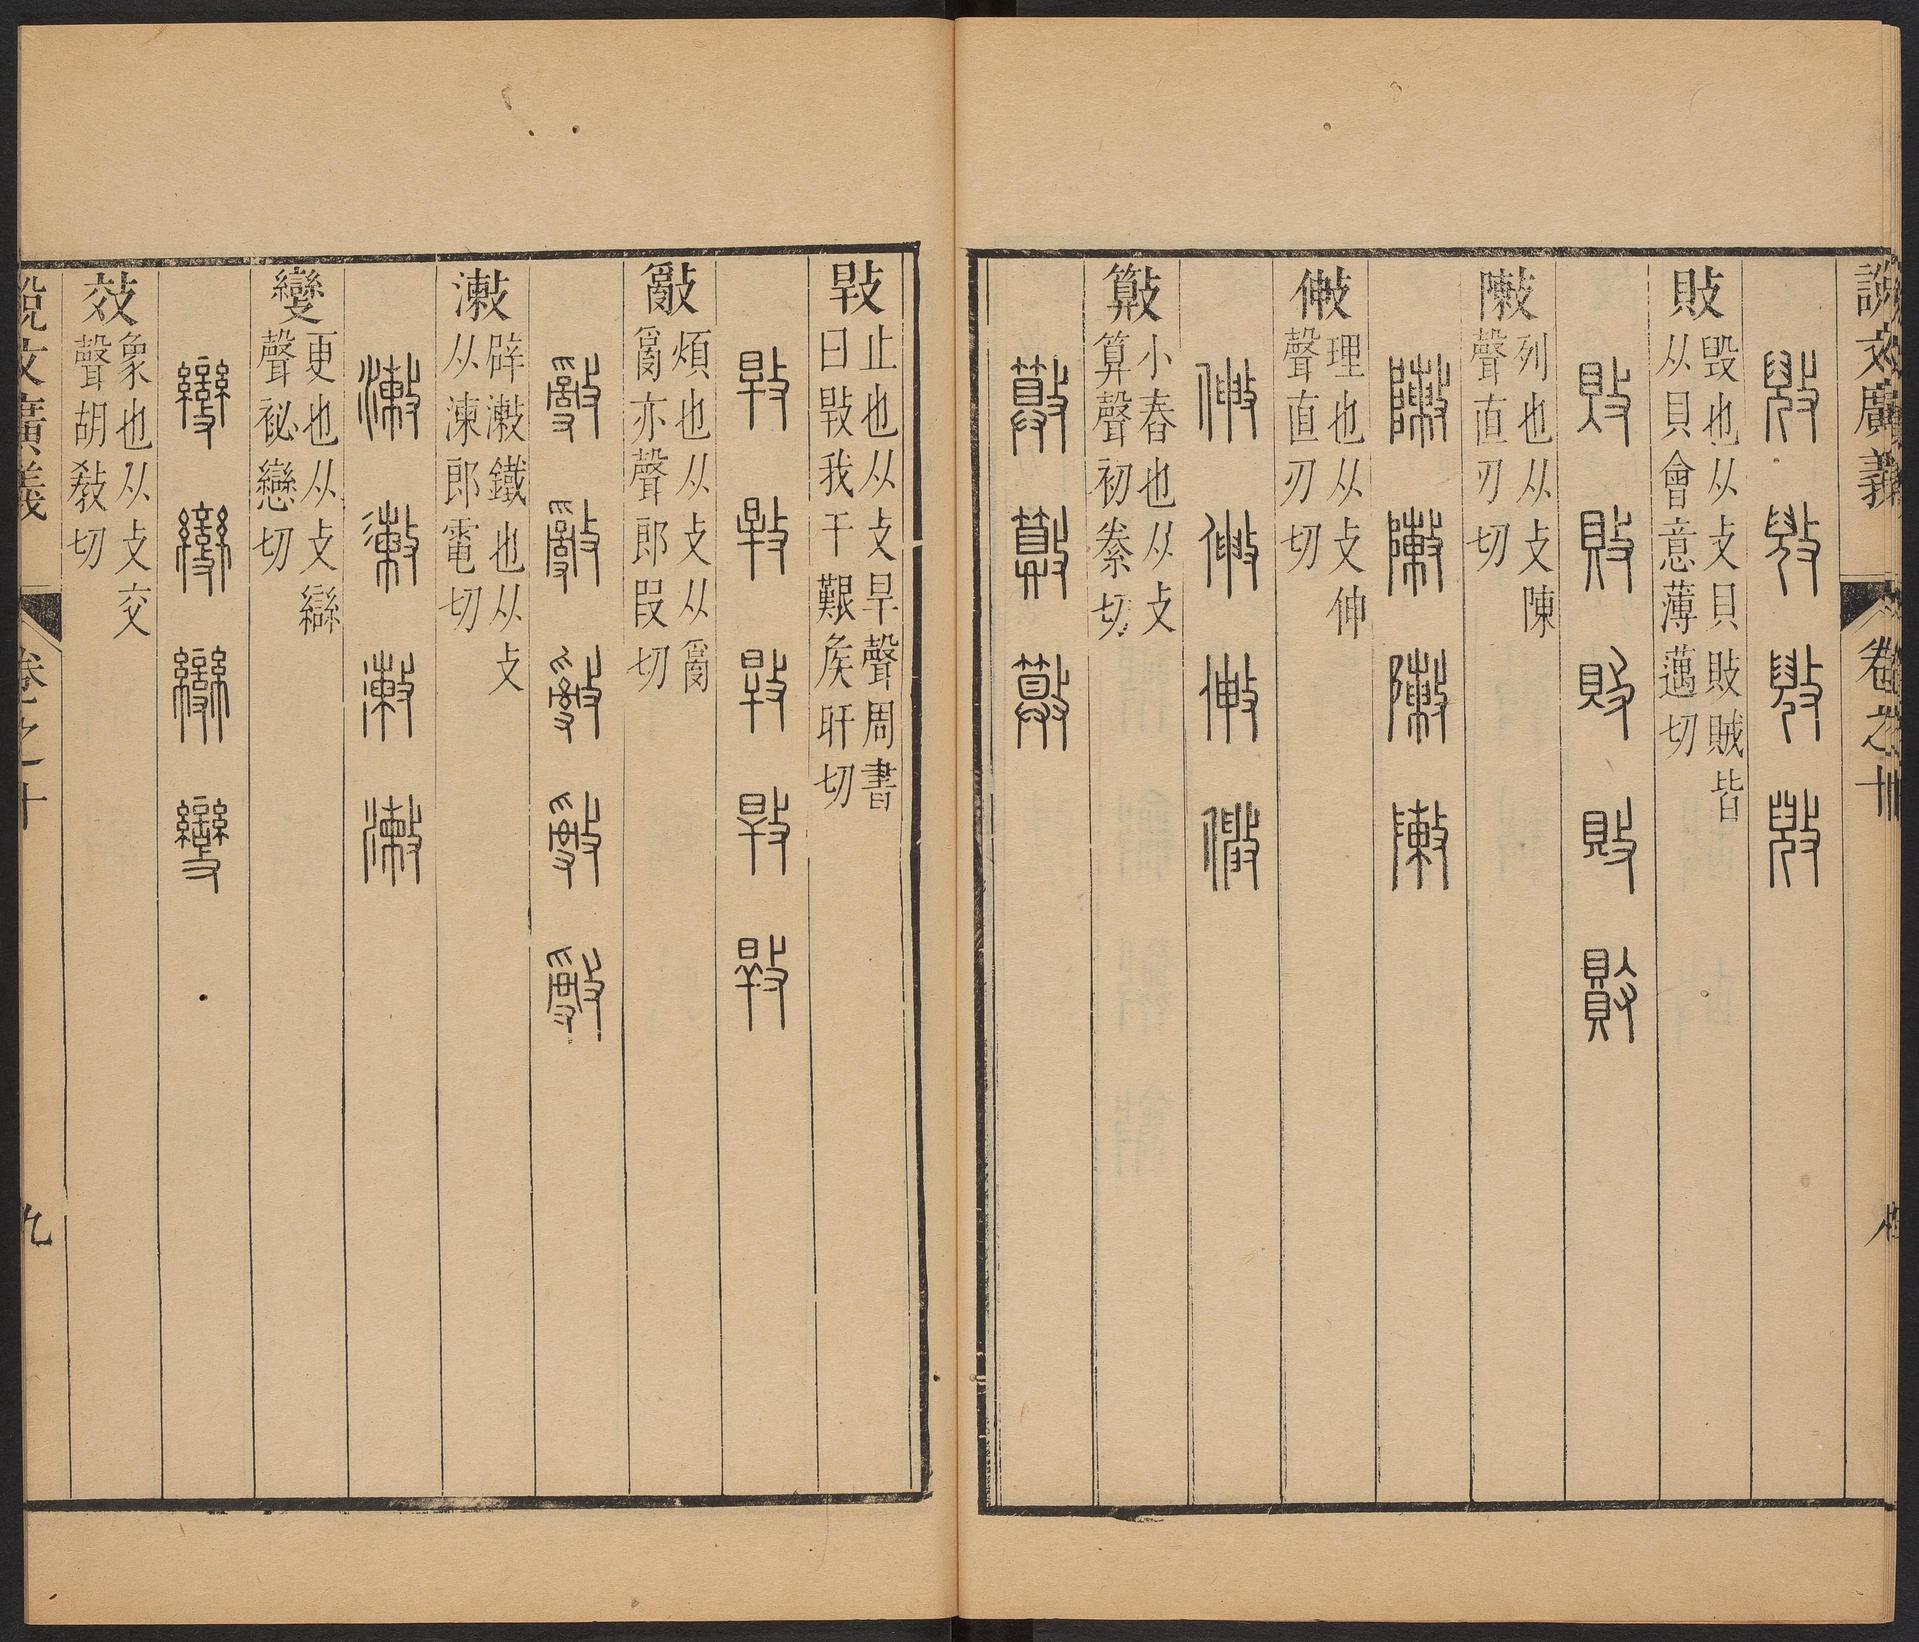 說文廣義 卷之十 八
敗
毀也从攴貝敗賊皆
从貝會意薄邁切
敗 敗 敗 敗 敗
敶
列也从攴陳
聲直刃切
敶 敶 敶 敶
敒
理也从攴伸
聲直刃切
敒 敒 敒 敒
小舂也从攴
算聲初絭切
止也从攴旱聲周書
曰我于艱矦旰切
煩也从攴从𤔔
𤔔亦聲郎段切
辟鐵也从攴
从湅郎電切
變
更也从攴䜌
聲祕戀切
變 變 變 變
效
象也从攴交
聲胡敎切
說文廣義 卷之十 九